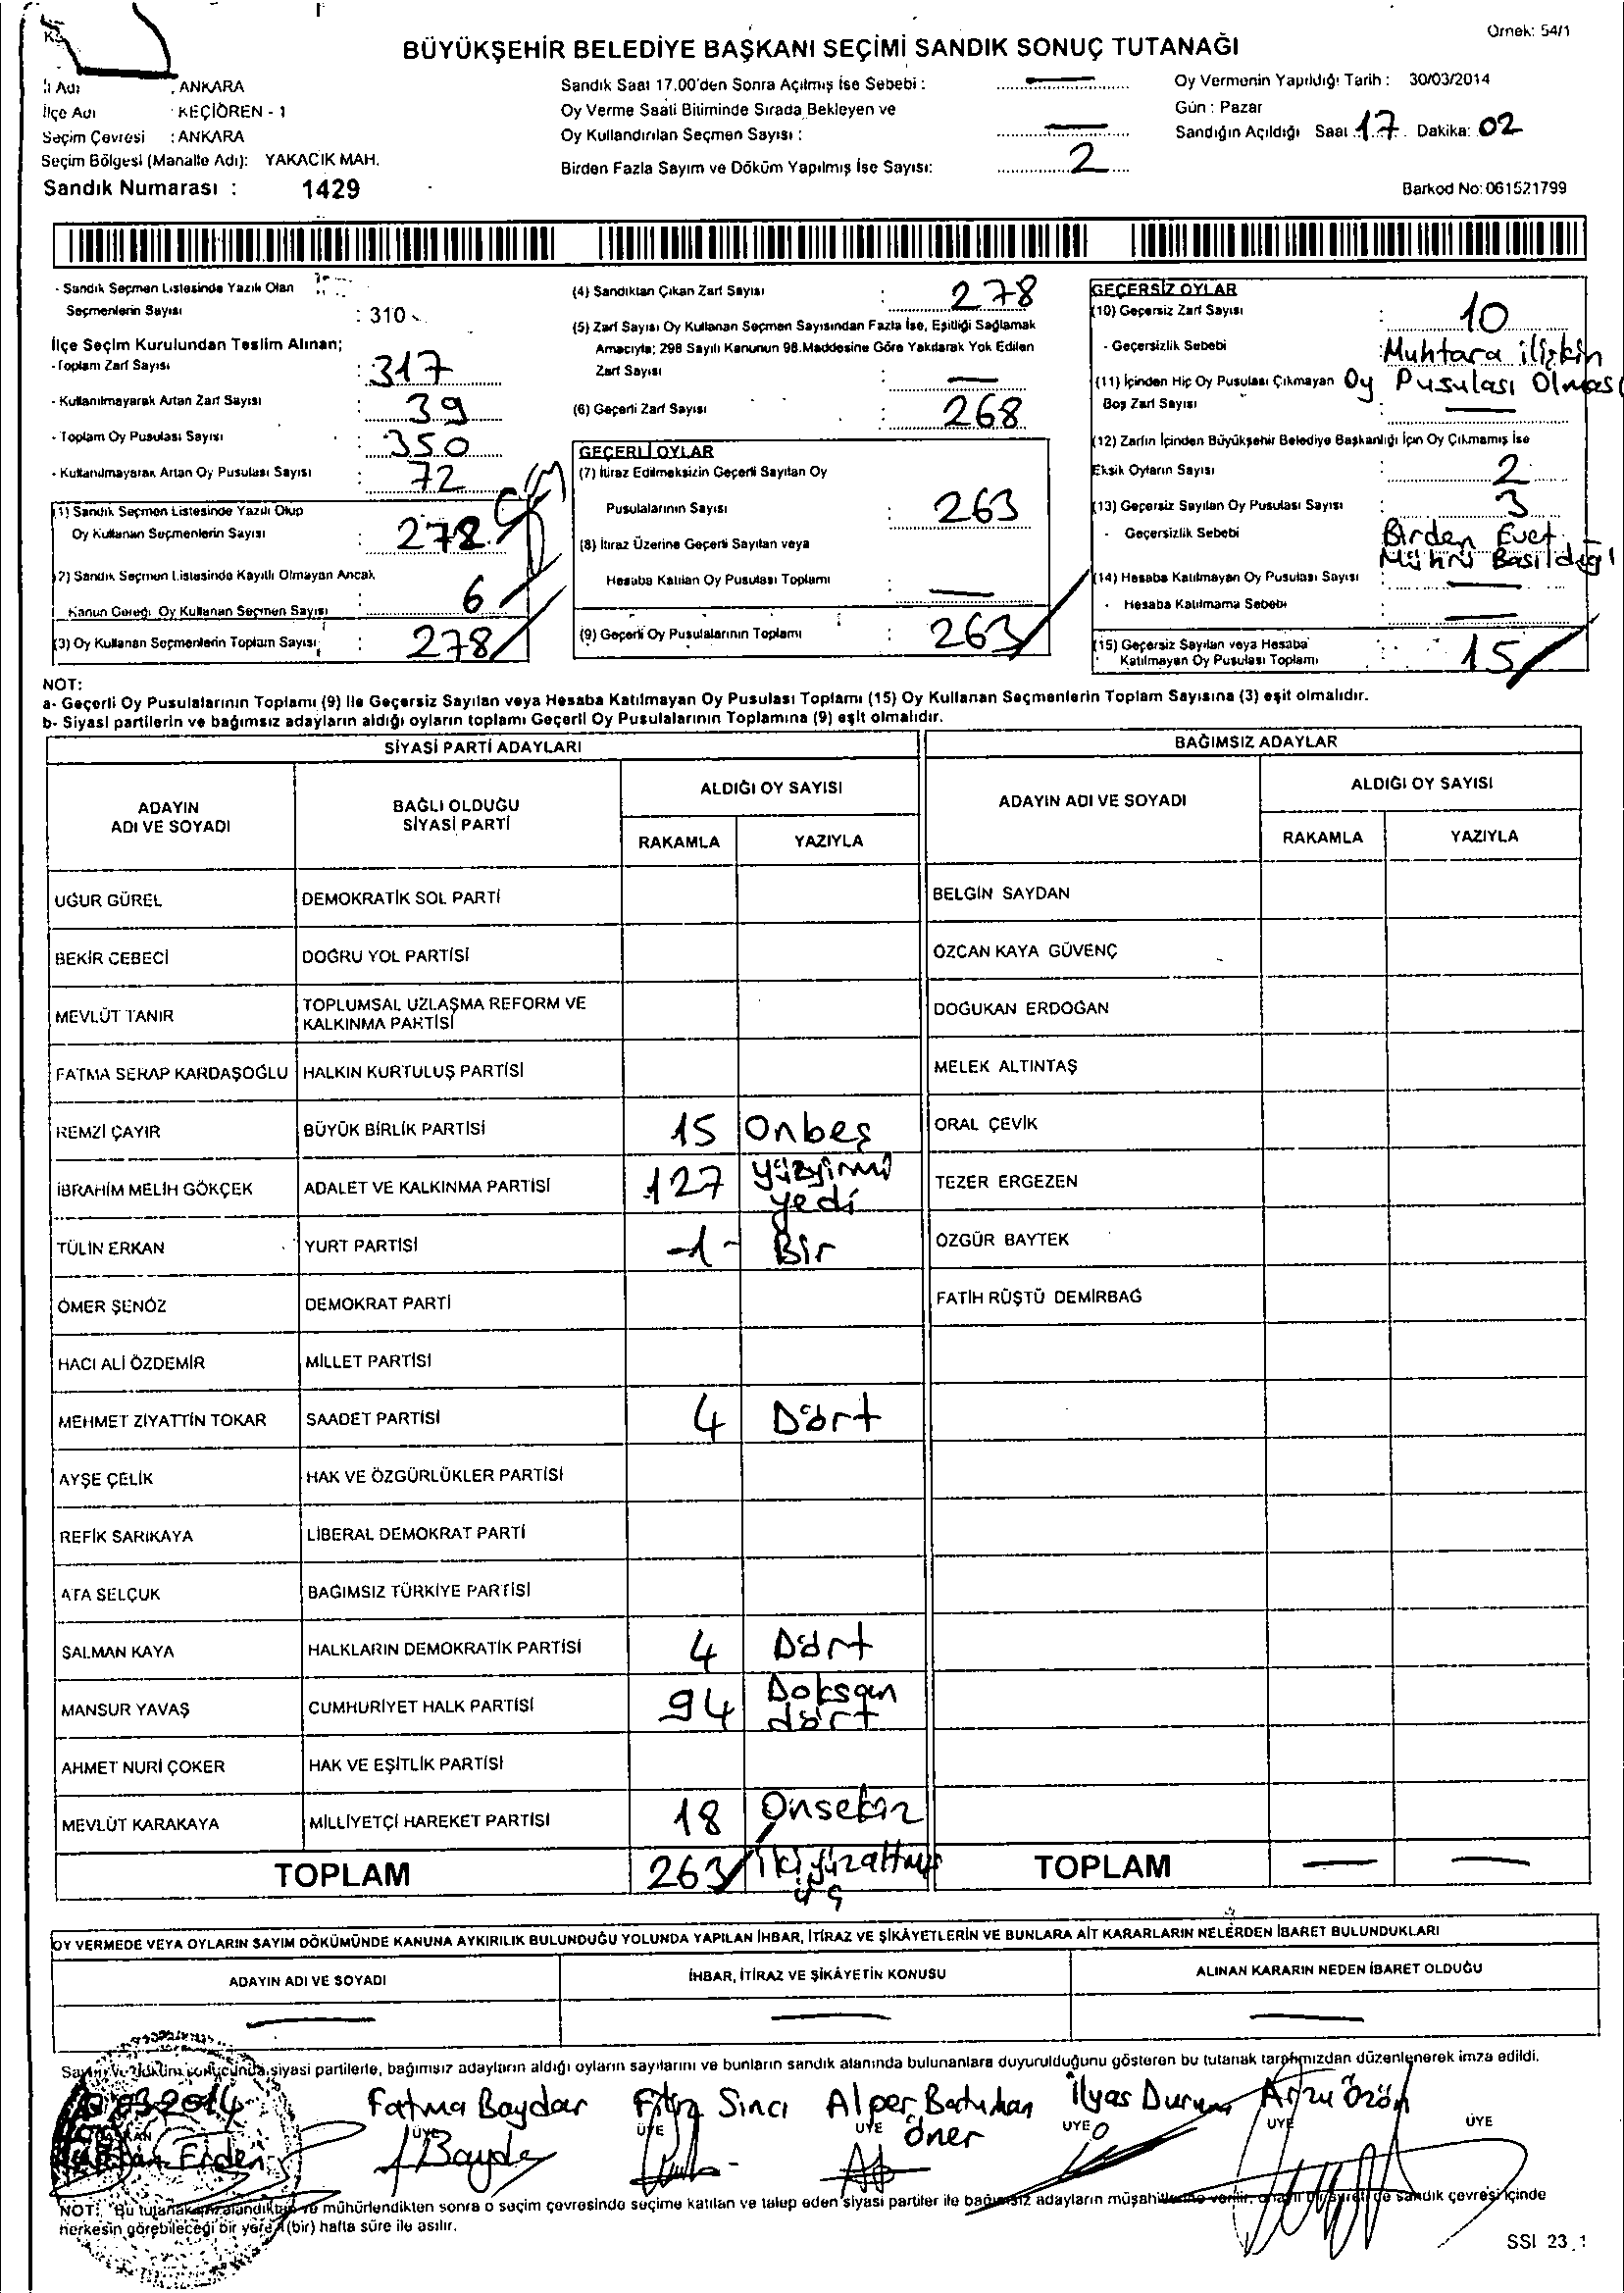 Örnek: 54/1
BÜYÜKŞEHİR BELEDİYE BAŞKANI SEÇİMİ SANDIK SONUÇ TUTANAĞI
İl Adı : ANKARA
İlçe Adı : KEÇİÖREN - 1
Seçim Çevresi : ANKARA
Seçim Bölgesi (Mahalle Adı): YAKACIK MAH.
Sandık Numarası : 1429
Sandık Saat 17.00'den Sonra Açılmış İse Sebebi :
Oy Verme Saati Bitiminde Sırada Bekleyen ve
Oy Kullandırılan Seçmen Sayısı :
Birden Fazla Sayım ve Döküm Yapılmış İse Sayısı: 2
Oy Vermenin Yapıldığı Tarih : 30/03/2014
Gün : Pazar
Sandığın Açıldığı Saat 17 Dakika: 02
Barkod No: 061521799
- Sandık Seçmen Listesinde Yazılı Olan
Seçmenlerin Sayısı : 310
İlçe Seçim Kurulundan Teslim Alınan;
- Toplam Zarf Sayısı : 317
- Kullanılmayarak Artan Zarf Sayısı : 39
- Toplam Oy Pusulası Sayısı : 350
- Kullanılmayarak Artan Oy Pusulası Sayısı : 72
(1) Sandık Seçmen Listesinde Yazılı Olup
Oy Kullanan Seçmenlerin Sayısı : 278
(2) Sandık Seçmen Listesinde Kayıtlı Olmayan Ancak
Kanun Gereği Oy Kullanan Seçmen Sayısı 6
(3) Oy Kullanan Seçmenlerin Toplam Sayısı : 278
(4) Sandıktan Çıkan Zarf Sayısı : 278
(5) Zarf Sayısı Oy Kullanan Seçmen Sayısından Fazla İse, Eşitliği Sağlamak
Amacıyla; 298 Sayılı Kanunun 98.Maddesine Göre Yakılarak Yok Edilen
Zarf Sayısı : —
(6) Geçerli Zarf Sayısı : 268
GEÇERLİ OYLAR
(7) İtiraz Edilmeksizin Geçerli Sayılan Oy
Pusulalarının Sayısı : 263
(8) İtiraz Üzerine Geçerli Sayılan veya
Hesaba Katılan Oy Pusulası Toplamı : —
(9) Geçerli Oy Pusulalarının Toplamı : 263
GEÇERSİZ OYLAR
(10) Geçersiz Zarf Sayısı : 10
- Geçersizlik Sebebi : Muhtara ilişkin
Oy Pusulası Olması
(11) İçinden Hiç Oy Pusulası Çıkmayan
Boş Zarf Sayısı : —
(12) Zarfın İçinden Büyükşehir Belediye Başkanlığı İçin Oy Çıkmamış İse
Eksik Oyların Sayısı : 2
(13) Geçersiz Sayılan Oy Pusulası Sayısı : 3
- Geçersizlik Sebebi Birden Evet
Mührü Basıldığı
(14) Hesaba Katılmayan Oy Pusulası Sayısı : —
- Hesaba Katılmama Sebebi : —
(15) Geçersiz Sayılan veya Hesaba
Katılmayan Oy Pusulası Toplamı : 15
NOT:
a- Geçerli Oy Pusulalarının Toplamı (9) ile Geçersiz Sayılan veya Hesaba Katılmayan Oy Pusulası Toplamı (15) Oy Kullanan Seçmenlerin Toplam Sayısına (3) eşit olmalıdır.
b- Siyasi partilerin ve bağımsız adayların aldığı oyların toplamı Geçerli Oy Pusulalarının Toplamına (9) eşit olmalıdır.
SİYASİ PARTİ ADAYLARI
ADAYIN ADI VE SOYADI BAĞLI OLDUĞU SİYASİ PARTİ ALDIĞI OY SAYISI
RAKAMLA YAZIYLA
UĞUR GÜREL DEMOKRATİK SOL PARTİ
BEKİR CEBECİ DOĞRU YOL PARTİSİ
MEVLÜT TANIR TOPLUMSAL UZLAŞMA REFORM VE KALKINMA PARTİSİ
FATMA SERAP KARDAŞOĞLU HALKIN KURTULUŞ PARTİSİ
REMZİ ÇAYIR BÜYÜK BİRLİK PARTİSİ 15 Onbeş
İBRAHİM MELİH GÖKÇEK ADALET VE KALKINMA PARTİSİ 127 yüzyirmi yedi
TÜLİN ERKAN YURT PARTİSİ -1- Bir
ÖMER ŞENÖZ DEMOKRAT PARTİ
HACI ALİ ÖZDEMİR MİLLET PARTİSİ
MEHMET ZİYATTİN TOKAR SAADET PARTİSİ 4 Dört
AYŞE ÇELİK HAK VE ÖZGÜRLÜKLER PARTİSİ
REFİK SARIKAYA LİBERAL DEMOKRAT PARTİ
ATA SELÇUK BAĞIMSIZ TÜRKİYE PARTİSİ
SALMAN KAYA HALKLARIN DEMOKRATİK PARTİSİ 4 Dört
MANSUR YAVAŞ CUMHURİYET HALK PARTİSİ 94 Doksan dört
AHMET NURİ ÇOKER HAK VE EŞİTLİK PARTİSİ
MEVLÜT KARAKAYA MİLLİYETÇİ HAREKET PARTİSİ 18 Onsekiz
TOPLAM 263 ikiyüzaltmış üç
BAĞIMSIZ ADAYLAR
ADAYIN ADI VE SOYADI ALDIĞI OY SAYISI
RAKAMLA YAZIYLA
BELGİN SAYDAN
ÖZCAN KAYA GÜVENÇ
DOĞUKAN ERDOĞAN
MELEK ALTINTAŞ
ORAL ÇEVİK
TEZER ERGEZEN
ÖZGÜR BAYTEK
FATİH RÜŞTÜ DEMİRBAĞ
TOPLAM — —
OY VERMEDE VEYA OYLARIN SAYIM DÖKÜMÜNDE KANUNA AYKIRILIK BULUNDUĞU YOLUNDA YAPILAN İHBAR, İTİRAZ VE ŞİKÂYETLERİN VE BUNLARA AİT KARARLARIN NELERDEN İBARET BULUNDUKLARI
ADAYIN ADI VE SOYADI İHBAR, İTİRAZ VE ŞİKÂYETİN KONUSU ALINAN KARARIN NEDEN İBARET OLDUĞU
— — —
Sayım ve döküm sonucunda siyasi partilerle, bağımsız adayların aldığı oyların sayılarını ve bunların sandık alanında bulunanlara duyurulduğunu gösteren bu tutanak tarafımızdan düzenlenerek imza edildi.
03.2014 Fatma Baydar Sinci Alper Batuhan Öner İlyas Arzu Özön
BAŞKAN ÜYE ÜYE ÜYE ÜYE ÜYE ÜYE
Erden Baydar
NOT: Bu tutanak imzalandıktan ve mühürlendikten sonra o seçim çevresinde seçime katılan ve talep eden siyasi partiler ile bağımsız adayların müşahitlerine verilir, onaylı bir sureti de sandık çevresi içinde
herkesin görebileceği bir yere 1 (bir) hafta süre ile asılır.
SSI 23_1